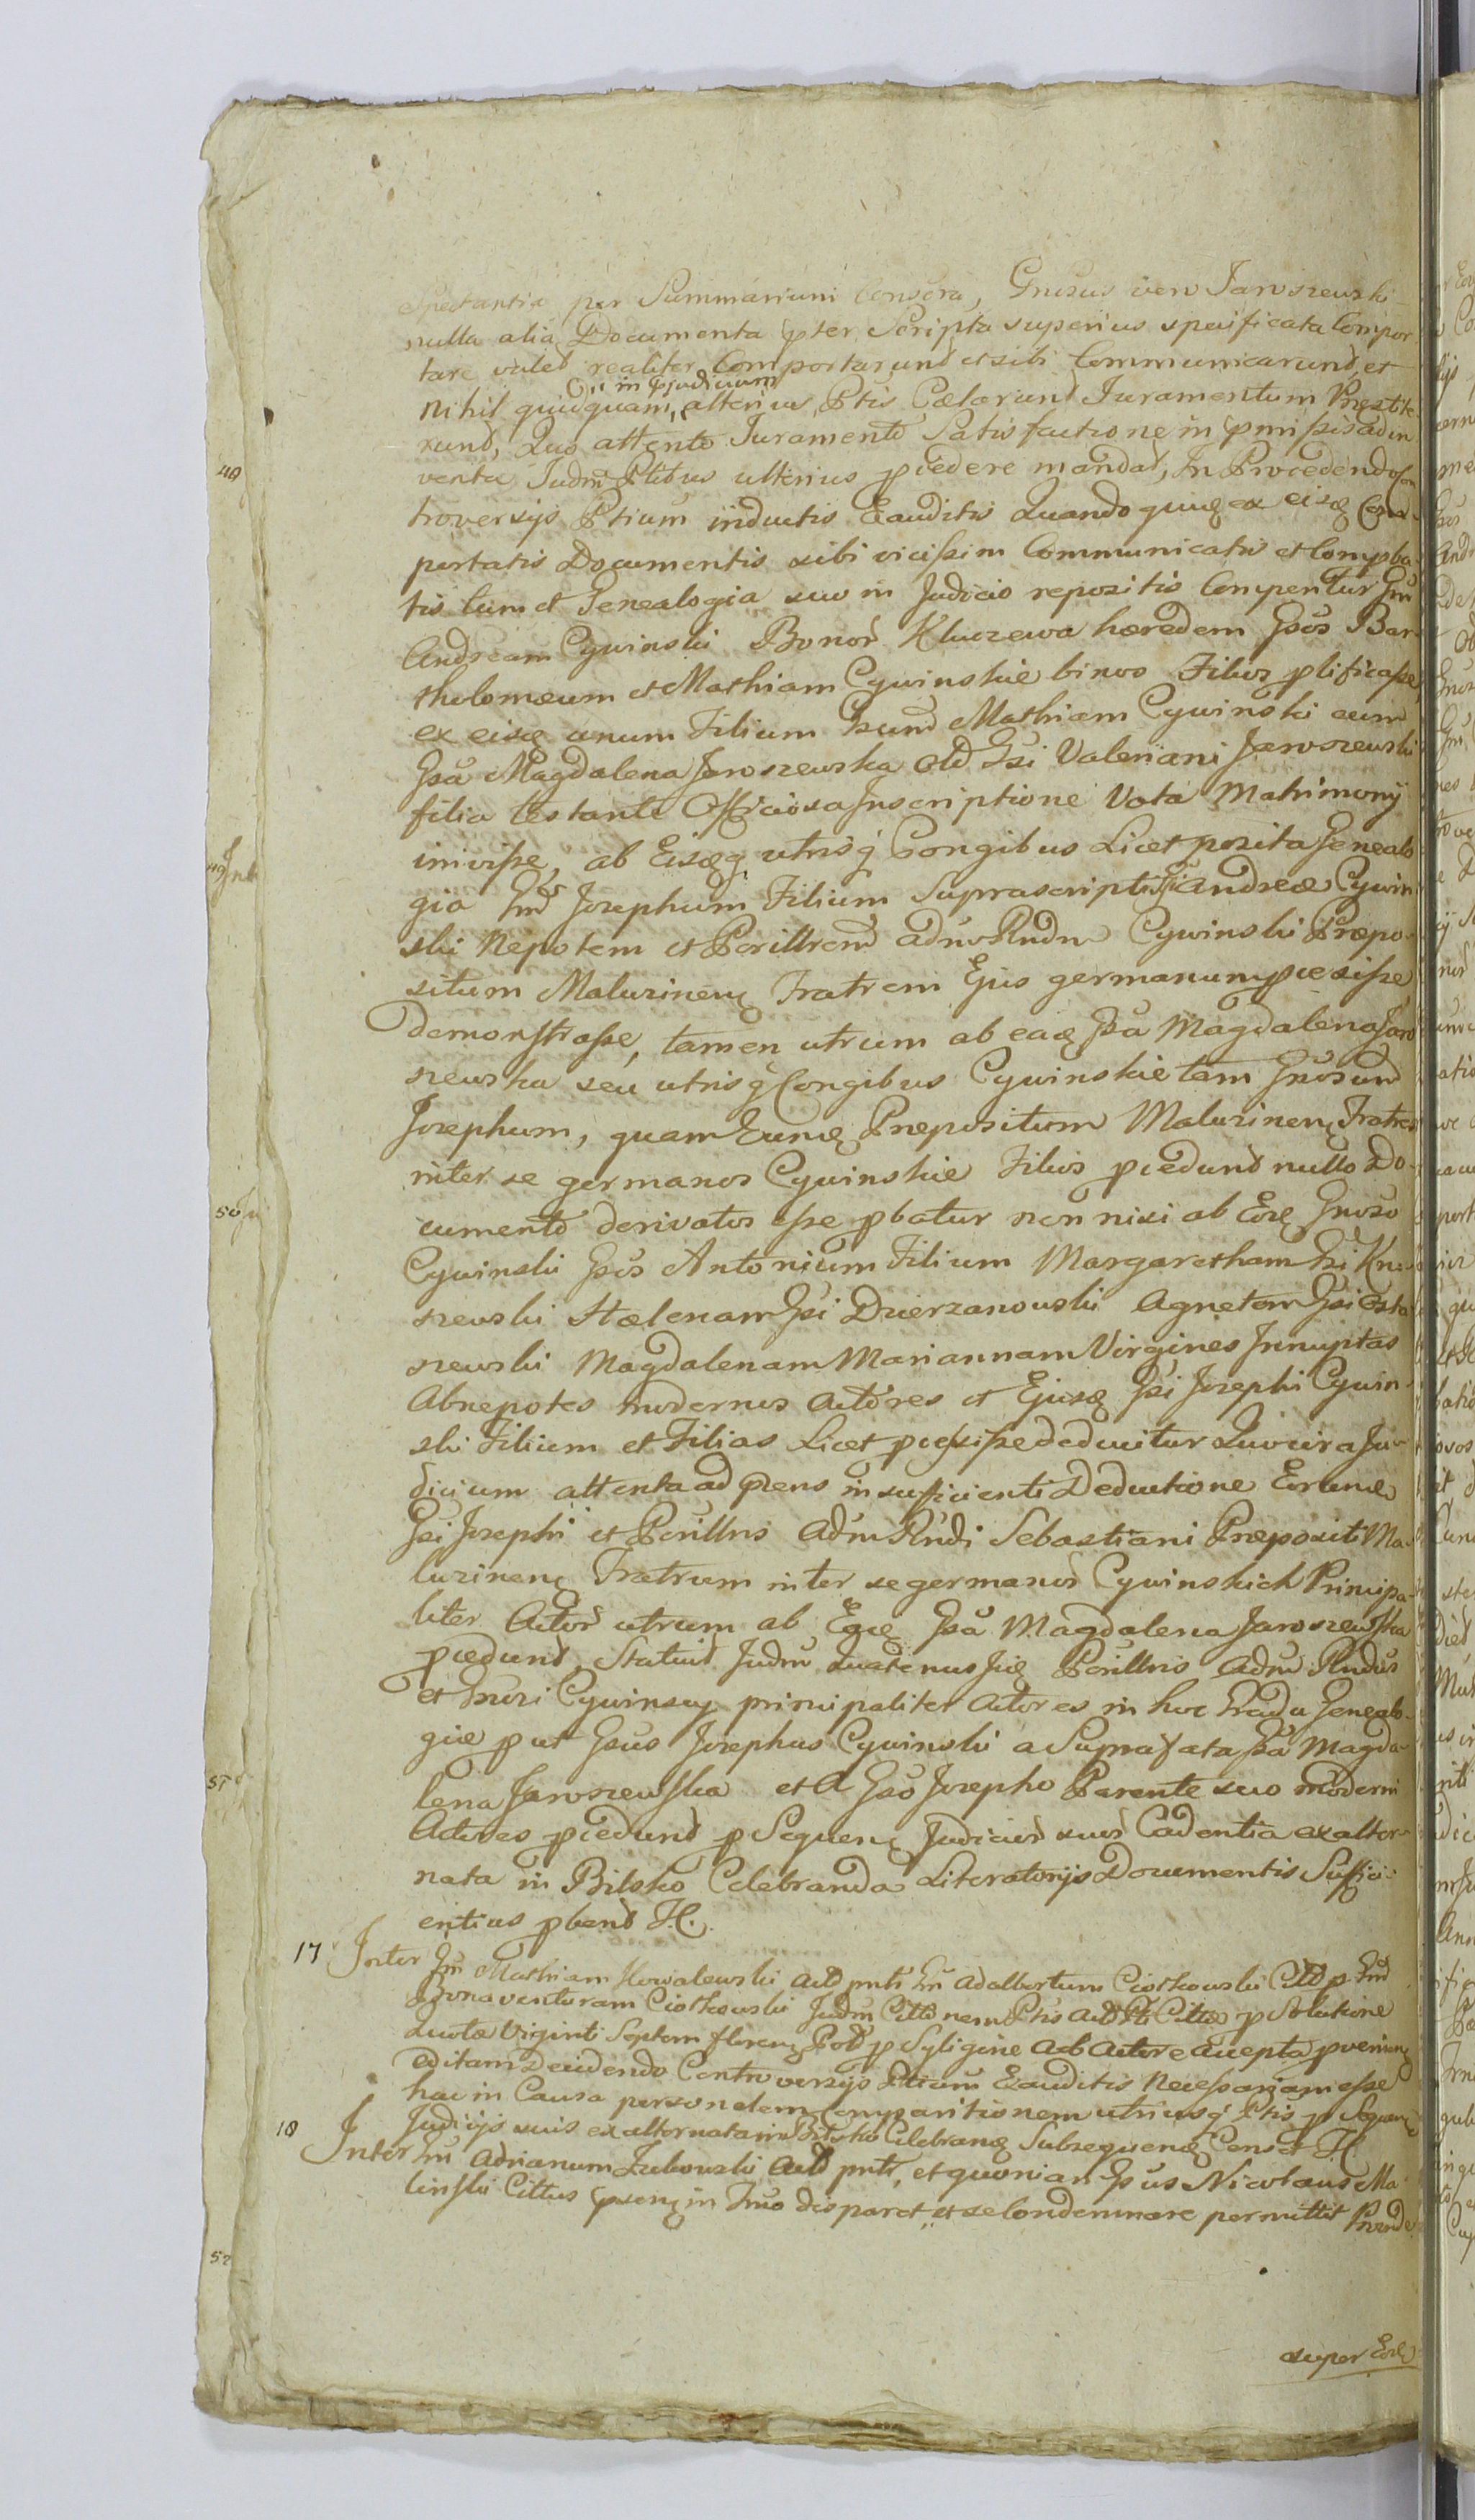 Spectantia per Summarium Censera, Gnrsus vero Jaroszewski
nulla alia Documenta pter Scripta superius specificata Compor
tare valet realiter Comportarunt et sibi Communicarunt, et
in pjudicium
nihil quicquam alterius Ptis Cælarunt Juramentum Præstite
runt, Quo attento Juramento Satisfactione in pmissis adin
49
venta Judm Ptibus ulterius pcedere mandat, In Procedendo Con
troversijs Ptium inductis Exauditis Quandoquidem ex eisdem Com
portatis Documentis sibi vicissim Communicatis et Compba
tis tum et Genealogia suo in Judicio repositis Comperitur Gnm
Andream Cywinski Bonor Kluczewa hæredem Gsos Bar
tholomæum et Mathiam Cywinskie binos Filios plificasse
ex eisdem unum Filium Gsum Mathiam Cywinski cum
Gsa Magdalena Jaroszewska olim Gsi Valeriani Jaroszewski
filia testante Officiosa Inscriptione Vota Matrimonij
inivisse, ab Eisdemq utrisq Congibus Licet posita Genealo
gia Josephum Filium Suprascripti Gsi Andreæ Cywin
ski Nepotem et Perillrem admRndm Cywinski Præpo
situm Maluzinen Fratrem Ejus germanum pcessisse
Demonstrasse, tamen utrum ab eadem Gsa Magdalena Jaro
szewska seu utrisq Congibus Cywinskie tam Gnrosum
Josephum, quam Eundem Præpositum Maluzinen Fratres
inter se germanos Cywinskie Filios pcedunt nullo Do
50
cumento derivatos esse pbatur non nisi ab Eodem Gnroso
Cywinski Gsos Antonium Filium Margaretham Gsi Kni
szewski Hælenam Gsi Dzierzanowski Agnetem Gsi Osta
szewski Magdalenam Mariannam Virgines Innuptas
Abnepotes modernos Actores et Ejusdem Gsi Josephi Cywin
ski Filium et Filias Licet pcessisse deducitur Quocirca Ju
dicium attenta ad præns insufficienti Deductione Eorundem
Gsi Josephi et Perillris Adm Rndi Sebastiani Præpositi Ma
luzinen Fratrum inter se germanor Cywinskich Principa
liter Actor utrum ab Eadem Gsa Magdalena Jaroszewska
pcedunt, Statuit Judm Quatenus Iidem Perillris Adm Rndus
et Gnrosi Cywinscy principaliter Actores in hoc Gradu Genealo
giæ put Gsus Josephus Cywinski a Suprafata Gsa Magda
51
lena Jaroszewska et A Gso Josepho Parente suo moderni
Actores pcedunt p Sequen Judicior suor Cadentia exalter
nata in Bilsko Celebranda Literatorijs Documentis Suffici
entius pbent H.
17 Inter Gm Mathiam Kowalewski Act pnti Gm Adalbertum Ciotkowski Citt p Gm
Bonaventuram Ciotkowski Judm Cittonem Ptis Act Pti Cittæ p Solutione
Quota Viginti Septem floren Pol p Syligine Ab Actore accepta pvenien
editam Decidendo Controversijs Ptium Exauditis Necessariam esse
hac in Causa personalem Comparitionem utriusq Ptis p Sequen
Judicijs suis exalternata in Bilsko Celebran Subsequen Censet H.
18 Inter Gm Adrianum Zukowski Act pnti, et quoniam Gsus Nicolaus Ma
linski Cittus psens in Tmo disparet, et se Condemnare permittit Proinde
52
super Eodem